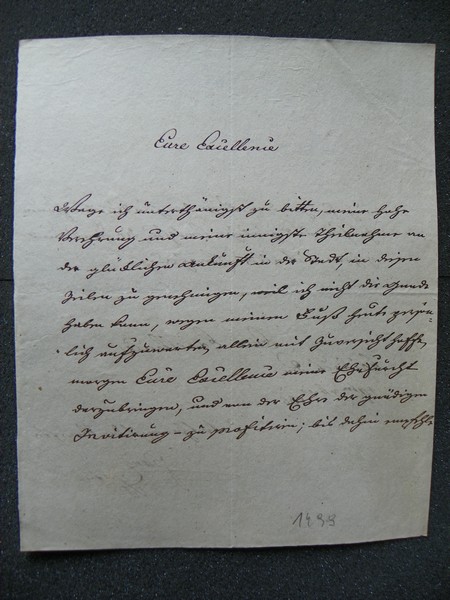 Eure Excellence
Wage ich unterthänigst zu bitten, meine hohe
Verehrung und meine innigste Theilnahme an
der glücklichen Ankunft in der Stadt, in diesen
Zeilen zu genehmigen, weil ich nicht die Gnade
haben kann, wegen meinen Fuß heute persön-
lich aufzuwarten, allein mit Zuversicht hoffe,
morgen Eure Excellence meine Ehrfurcht
darzubringen, und von der Ehre der gnädigen
Invitirung – zu profitiren; bis dahin